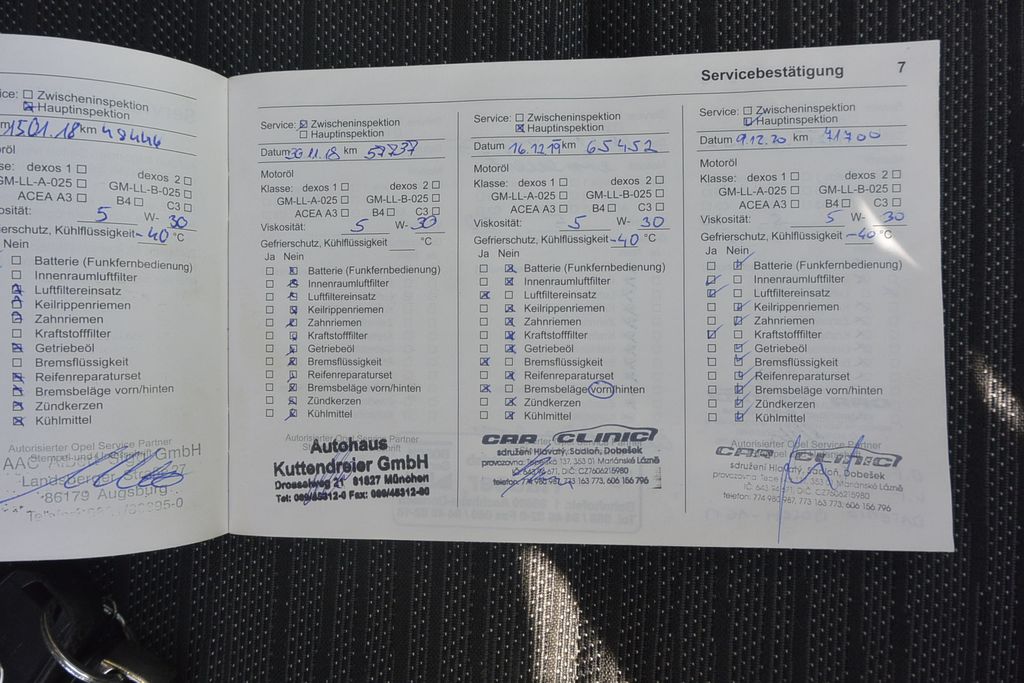 ice: Zwischeninspektion
Hauptinspektion
m 15.01.18 km 48446
röl
se: dexos 1 dexos 2
GM-LL-A-025 GM-LL-B-025
ACEA A3 B4 C3
osität: 5 W- 30
erschutz, Kühlflüssigkeit -40 °C
Nein
Batterie (Funkfernbedienung)
Innenraumluftfilter
Luftfiltereinsatz
Keilrippenriemen
Zahnriemen
Kraftstofffilter
Getriebeöl
Bremsflüssigkeit
Reifenreparaturset
Bremsbeläge vorn/hinten
Zündkerzen
Kühlmittel
Autorisierter Opel Service Partner
86179 Augsburg
Servicebestätigung 7
Service: Zwischeninspektion
Hauptinspektion
Datum 11.18 km 57737
Motoröl
Klasse: dexos 1 dexos 2
GM-LL-A-025 GM-LL-B-025
ACEA A3 B4 C3
Viskosität: 5 W- 30
Gefrierschutz, Kühlflüssigkeit °C
Ja Nein
Batterie (Funkfernbedienung)
Innenraumluftfilter
Luftfiltereinsatz
Keilrippenriemen
Zahnriemen
Kraftstofffilter
Getriebeöl
Bremsflüssigkeit
Reifenreparaturset
Bremsbeläge vorn/hinten
Zündkerzen
Kühlmittel
Autorisierter Opel Service Partner
Autohaus
Kuttendreier GmbH
Drosselweg 21 81827 München
Service: Zwischeninspektion
Hauptinspektion
Datum 16.12.19 km 65452
Motoröl
Klasse: dexos 1 dexos 2
GM-LL-A-025 GM-LL-B-025
ACEA A3 B4 C3
Viskosität: 5 W- 30
Gefrierschutz, Kühlflüssigkeit -40 °C
Ja Nein
Batterie (Funkfernbedienung)
Innenraumluftfilter
Luftfiltereinsatz
Keilrippenriemen
Zahnriemen
Kraftstofffilter
Getriebeöl
Bremsflüssigkeit
Reifenreparaturset
Bremsbeläge vorn/hinten
Zündkerzen
Kühlmittel
CAR CLINIC
sdružení Hlavatý, Sadloň, Dobešek
provozovna: Tepelská 137, 353 01 Mariánské Lázně
telefon: 774 980 967, 773 163 773, 606 156 796
Service: Zwischeninspektion
Hauptinspektion
Datum 9.12.20 km 71700
Motoröl
Klasse: dexos 1 dexos 2
GM-LL-A-025 GM-LL-B-025
ACEA A3 B4 C3
Viskosität: 5 W- 30
Gefrierschutz, Kühlflüssigkeit -40 °C
Ja Nein
Batterie (Funkfernbedienung)
Innenraumluftfilter
Luftfiltereinsatz
Keilrippenriemen
Zahnriemen
Kraftstofffilter
Getriebeöl
Bremsflüssigkeit
Reifenreparaturset
Bremsbeläge vorn/hinten
Zündkerzen
Kühlmittel
Autorisierter Opel Service Partner
CAR CLINIC
sdružení Hlavatý, Sadloň, Dobešek
Mariánské Lázně
telefon: 774 980 967, 773 163 773, 606 156 796